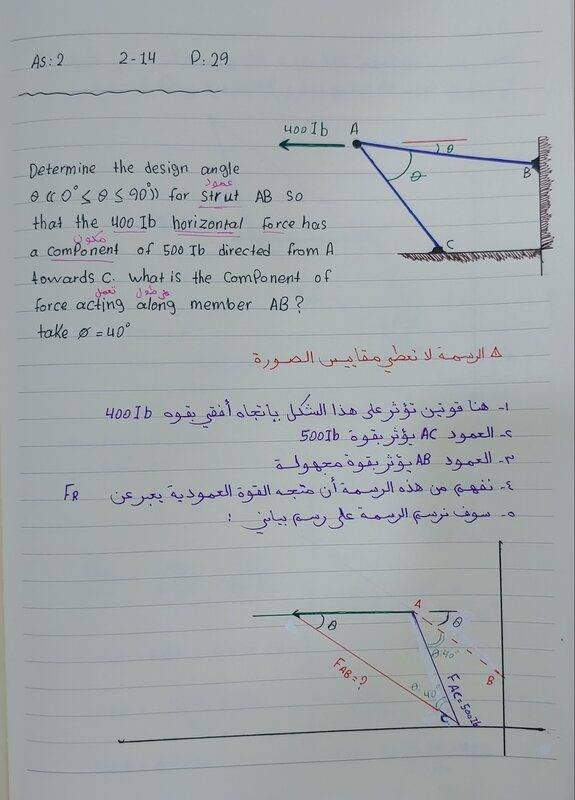 As: 2 2-14 P: 29
400 Ib
A
θ
θ
B
C
Determine the design angle
θ (( 0° ≤ θ ≤ 90° )) for strut AB so
عمود
that the 400 Ib horizontal force has
a component of 500 Ib directed from A
مكون
towards C. What is the component of
force acting along member AB?
تعمل على طول
take ø = 40°
Δ الرسمة لا تعطي مقاييس الصورة
١- هنا قوتين تؤثر على هذا الشكل بإتجاه أفقي بقوه 400 Ib
٢- العمود AC يؤثر بقوة 500 Ib
٣- العمود AB يؤثر بقوة مجهولة
٤- نفهم من هذه الرسمة أن متجه القوة العمودية يعبر عن FR
٥- سوف نرسم الرسمة على رسم بياني :
A
θ
θ
θ.40°
FAB = ?
θ.40°
FAC = 500 Ib
B
C